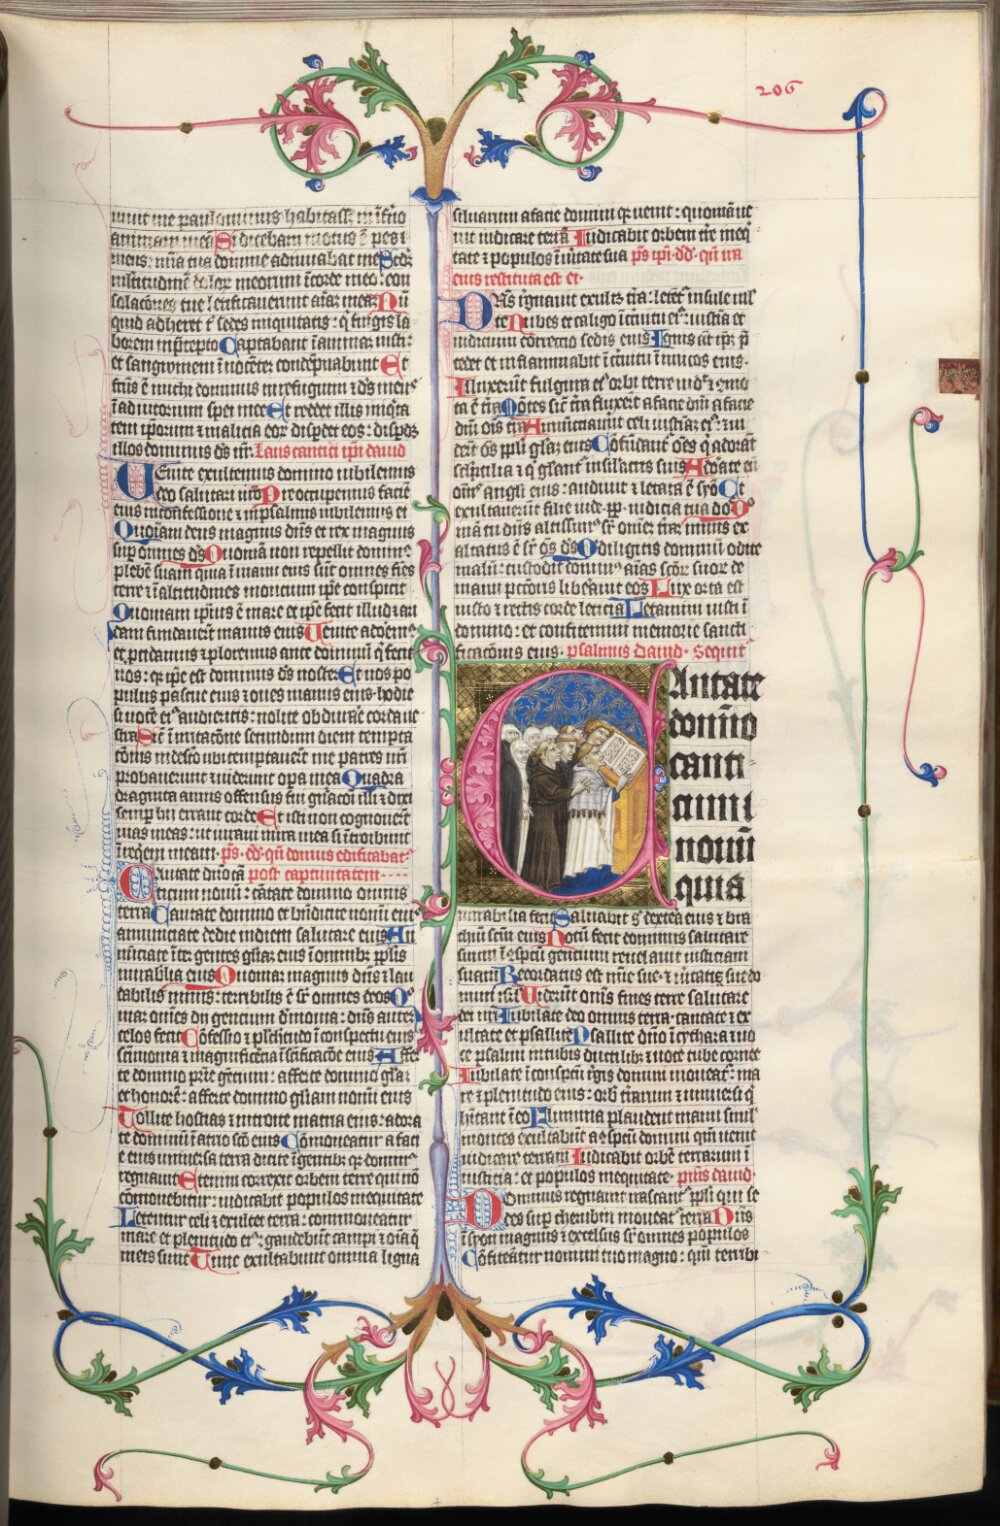 206
animam meā Si dicebam motus ē pes
meus: mīa tua domine adiuvabat me Scdꝫ
multitudinē dolor meorum ī corde meo: con
solacōnes tue letificaverunt aīaꝫ meaꝫ Nū
quid adheret t' sedes iniquitatis: q' fingis la
borem in p̄cepto Captabant ī animaꝫ iusti:
et sanguinem īnocētē condēpnabunt Et
fc̄us ē michi dominus in refugium ⁊ ds̄ meus
ī adiutorium spei mee Et reddet illis iniq̄ta
tem ipsorum ⁊ malicia eoꝝ disꝑdet eos: disꝑdꝫ
illos dominus ds̄ nr̄: Laus cantici ip̄i david
Venite exultemus domino iubilemus
deo salutari nr̄o Preoccupemus faciē
eius in confessione ⁊ in psalmis iubilemus ei
Quoīam deus magnus dn̄s et rex magnus
sup̄ omnes ds̄ Quoniā non repellit dominꝰ
plebē suam quia ī manu eius sūt omnes fīes
terre ⁊ altitudines moncium ip̄e conspicit
Quoniam ip̄ius ē mare et ip̄e fecit illud ⁊ ari
dam fundaverūt manus eius Venite adorēmꝰ
et ꝓcidamus ⁊ ploremus ante dominū q' fecit
nos: qꝫ ip̄e est dominus ds̄ noster Et nos po
pulus pascue eius ⁊ oves manus eius hodie
si vocē eiꝰ audieritis: nolite obdurare corda ve
stra Sic̄ ī irritacōne secundum diem tempta
cōnis in deserto ubi temptaverūt me patres vr̄i
probaverunt ⁊ viderunt opa mea Quadra
draginta annis offensus fui gn̄acōi illi ⁊ dixi
semꝑ hii errant corde Et isti non cognoverūt
vias meas: ut iuravi in ira mea si ītroibunt
ī reqiem meam: ps̄. dd. qn̄ domus edificabatꝰ
Cantate dn̄o cā post captivitatem
ticum novū: cātate domino omnis
terra Cantate domino et bn̄dicite nomī eiꝰ
annunciate de die in diem salutare eius An
nūciate īt' gentes gl'am eius ī omnibꝫ pp̄lis
mirabilia eius Quoniaꝫ magnus dn̄s ⁊ lau
dabilis nimis: terribilis ē sr̄ omnes deos Qꝰ
niaꝫ omēs dii gencium demonia: dn̄s autē
celos fecit Cōfessio ⁊ pulchritudo ī conspectu eius
sc̄imonia ⁊ magnificēcia ī sc̄ificacōe eius Affer
te domino pr̄ie gēcium: afferte domino gl'aꝫ
et honorē: afferte domino gl'iam nomī eius
Tollite hostias ⁊ introite in atria eius: adora
te dominū ī atrio sc̄o eius Cōmoveatur a faci
e eius universa terra dicite ī gentibꝫ qꝫ dominꝰ
regnavit Etenim correxit orbem terre qui nō
cōmovebitur: iudicabit populos in equitate
Letentur celi ⁊ exultet terra: commoveatur
mare et plenitudo eiꝰ: gaudebūt campi ⁊ oīa q̄
in eis sunt Tunc exultabunt omnia ligna
silvarum a facie domini qꝫ venit: quoniā ve
nit iudicare terā Iudicabit orbem tr̄e in eq̄
tate ⁊ populos ī v̄itate sua ps̄ ip̄i dd. qn̄ tra
eius restituta est ei.
Dn̄s regnavit exultꝫ tr̄a: letēt' insule ml'
te Nubes et caligo ī circuitu eiꝰ: iusticia et
iudicium correctio sedis eius Ignis ān̄ ip̄m p̄
cedet et inflammabit ī circuitu inimicos eius.
Illuxerūt fulgura eiꝰ orbi terre vidꝫ ⁊ cmo
ta ē tr̄a Mōtes sic̄ cera fluxerūt a facie dn̄i a facie
dn̄i ois tr̄a Annunciaverūt celi iusticiaꝫ eiꝰ: ⁊ vi
derūt oēs pp̄li gl'aꝫ eius Cōfūdant' oēs q' adorāt
sculptilia ⁊ q' gl'ant' in simulacris suis Adorate eū
om̄s angl'i eius: audivit ⁊ letata ē syō Et
exultaverūt filie iude: ꝓp̄ iudicia tua do Qꝰ
niā tu dn̄s altissimꝰ sr̄ om̄eꝫ tr̄aꝫ: nimis ex
altatus ē sr̄ oēs ds̄ Qui diligitis dominū odite
malū: custodit dominꝰ aīas sc̄oꝝ suoꝝ de
manu peccōris lib'avit eos Lux orta est
iusto ⁊ rectis corde leticia Letamini iusti ī
domino: et confitemini memorie sancti
ficacōnis eius. psalmus david. Sequit'
Cantate
domīno
canti
cum
novū
quia
mirabilia fecit Salvavit s' dextera eius ⁊ bra
chiū sc̄m eius Notū fecit dominus salutare
suum ī cspectu gencium revelavit iusticiam
suam Recordatus est mīe sue ⁊ v̄itatis sue do
mui isrl' Viderūt om̄s fines terre salutare
dei nr̄i Iubilate deo omnis terra: cantate ⁊ ex
ultate et psallite Psallite dn̄o ī cythara ⁊ vo
ce psalmi in tubis ductilibꝫ ⁊ voce tube cornee
Iubilate ī conspcū regis domini moveat' ma
re ⁊ plenitudo eius: orbꝫ tr̄arum ⁊ universi q'
hītant ī eo Flumina plaudent manu simul
montes exultabūt a cspectu domini qm̄ venit
iudicare terram Iudicabit orbē terrarum ī
iusticia: et populos in equitate. p̄mꝰ david.
Dominus regnavit irascant' pp̄li qui se
des sup̄ cherubin moveat' terra Dn̄s
ī syon magnus ⁊ excelsus sr̄ omnes populos
Cōfiteātur nomini tuo magno: qm̄ terribi